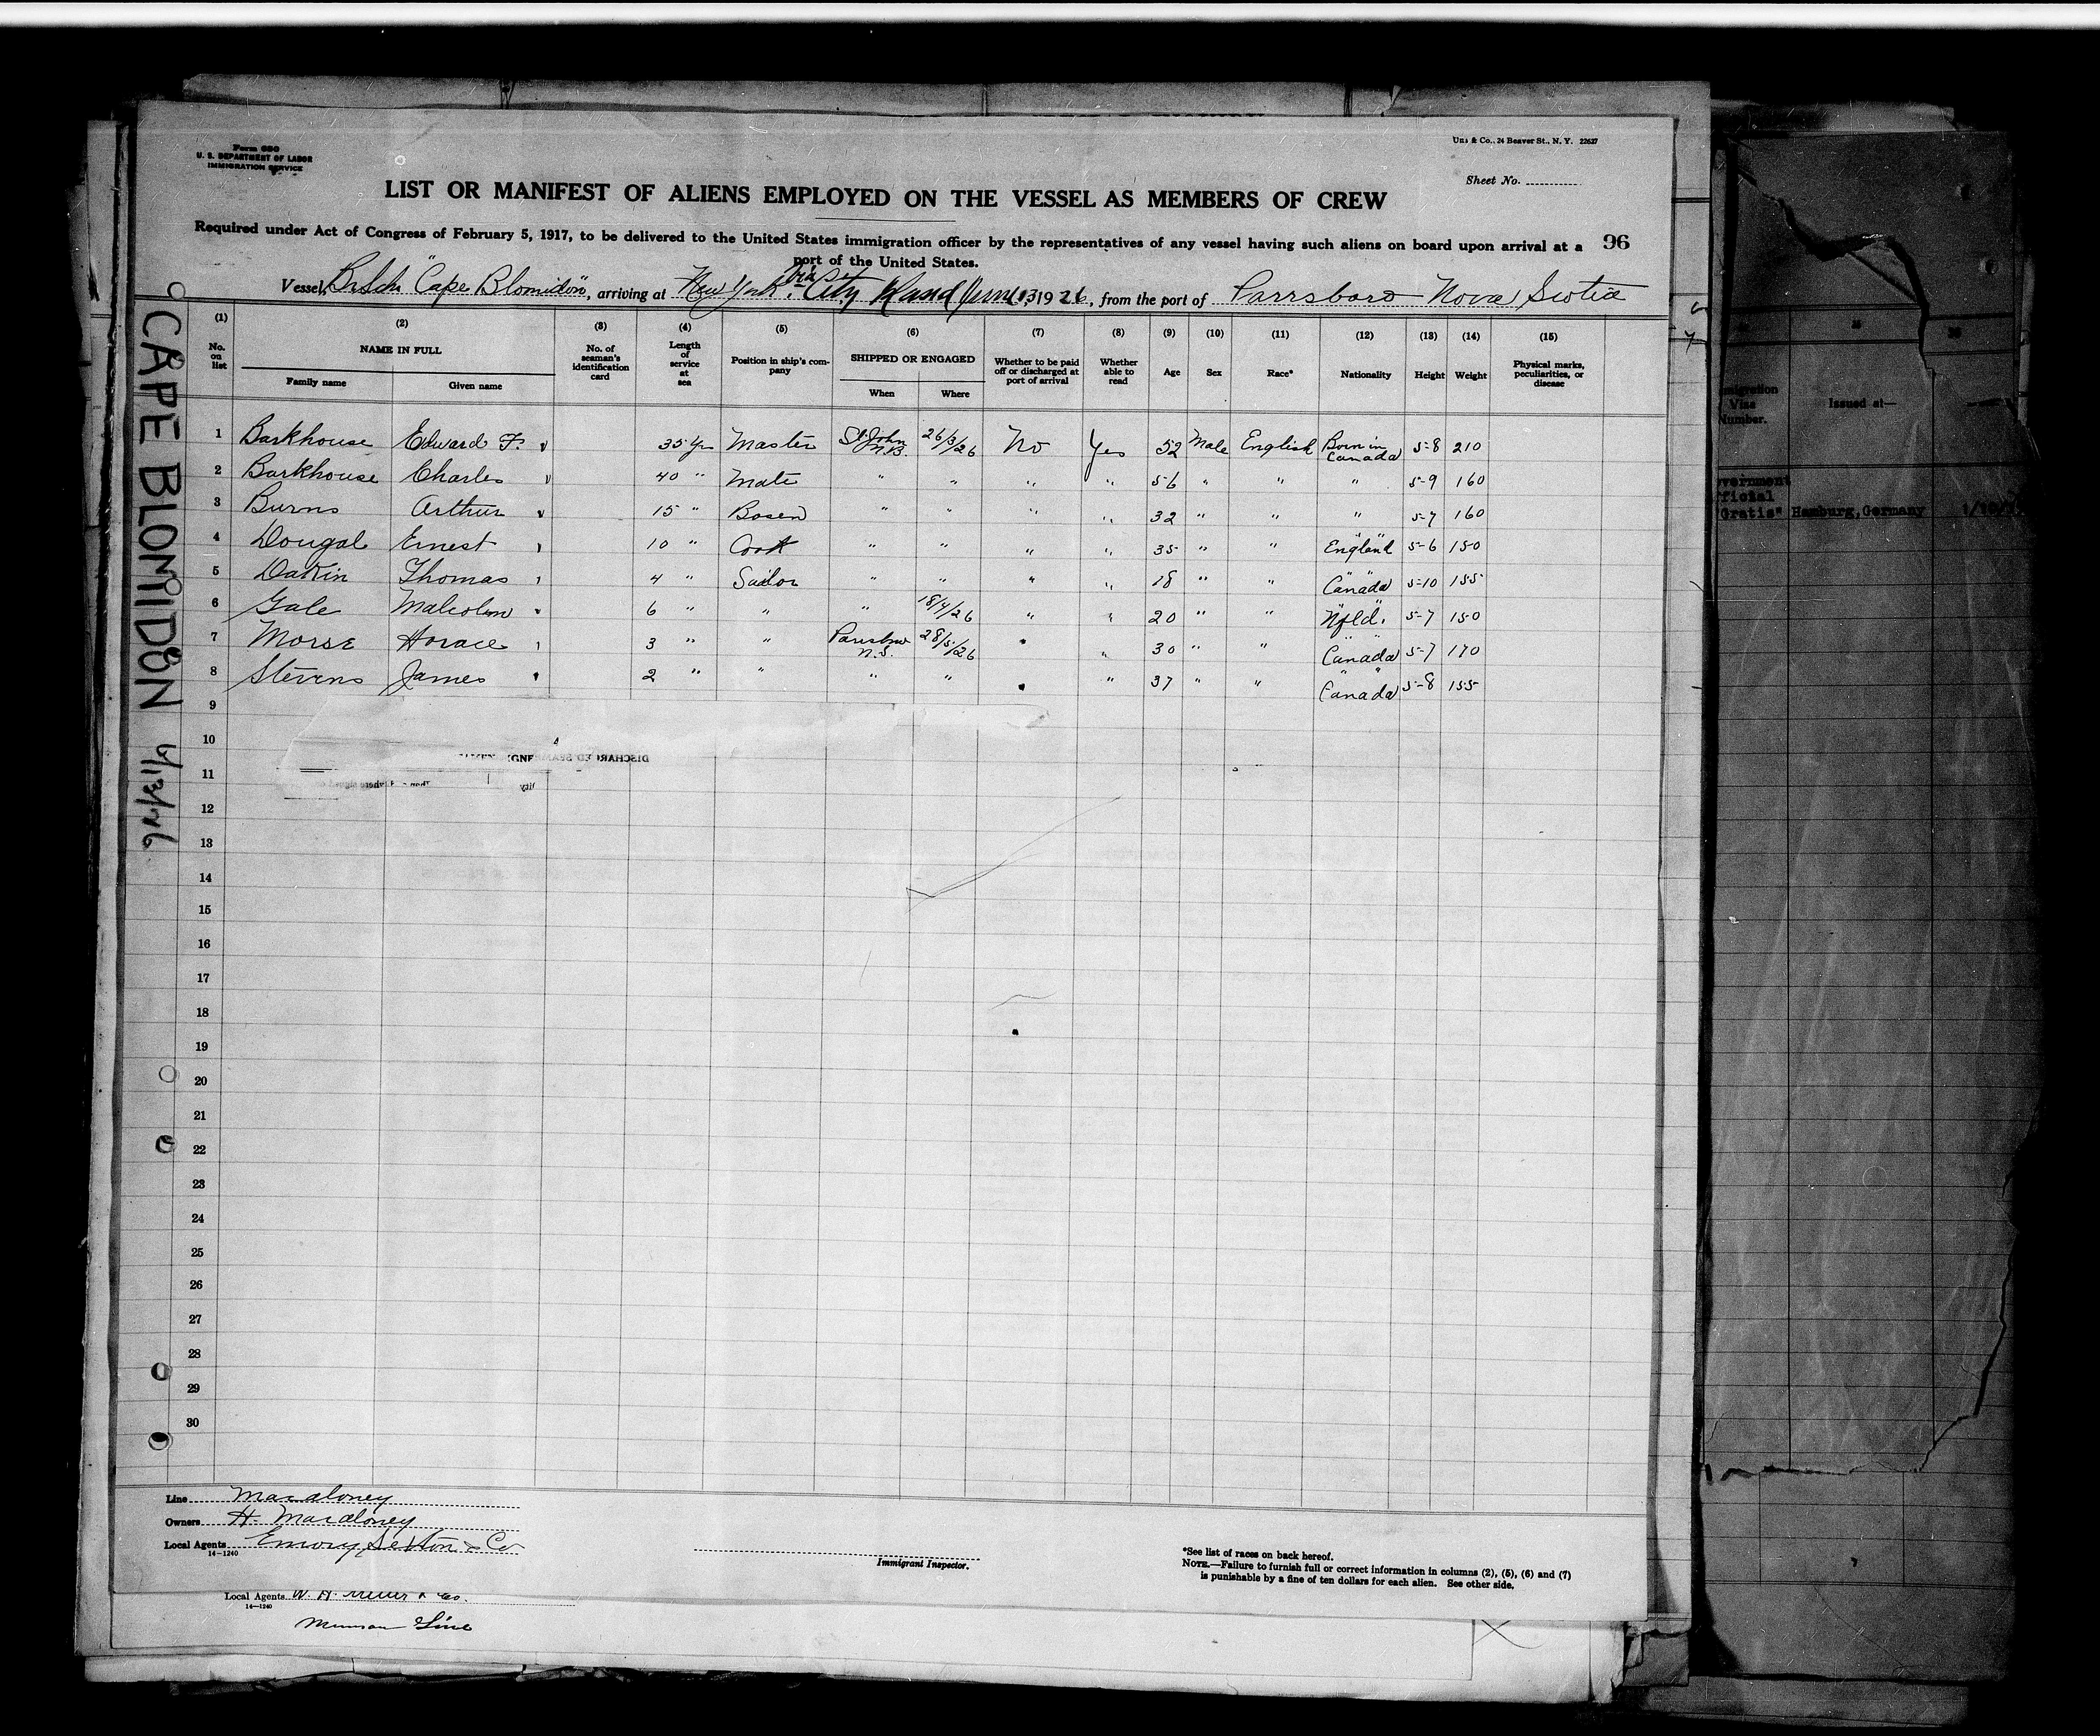 Form 680
U. S. DEPARTMENT OF LABOR
IMMIGRATION SERVICE
& Co., 24 Beaver St., N. Y. 22627
Sheet No.
LIST OR MANIFEST OF ALIENS EMPLOYED ON THE VESSEL AS MEMBERS OF CREW
Required under Act of Congress of February 5, 1917, to be delivered to the United States immigration officer by the representatives of any vessel having such aliens on board upon arrival at a
port of the United States.
96
Vessel, Br Schr "Cape Blomidon", arriving at New York, via City Island June 13 1926, from the port of Parrsboro Nova Scotia
CAPE BLOMIDON 6/13/26
(1) (2) (3) (4) (5) (6) (7) (8) (9) (10) (11) (12) (13) (14) (15)
No. on list NAME IN FULL Family name Given name No. of seaman's identification card Length of service at sea Position in ship's company SHIPPED OR ENGAGED When Where Whether to be paid off or discharged at port of arrival Whether able to read Age Sex Race* Nationality Height Weight Physical marks, peculiarities, or disease
1 Barkhouse Edward F. 35 Yrs Master St. John N.B. 26/3/26 No Yes 52 Male English Born in Canada 5-8 210
2 Barkhouse Charles 40 " Mate " " " " 56 " " " 5-9 160
3 Burns Arthur 15 " Bosen " " " " 32 " " " 5-7 160
4 Dougal Ernest 10 " Cook " " " " 35 " " " " England 5-6 150
5 Dakin Thomas 4 " Sailor " " " " 18 " " " " Canada 5-10 155
6 Gale Malcolm 6 " " " 18/4/26 " " 20 " " " " Nfld. 5-7 150
7 Morse Horace 3 " " Parrsboro N.S. 28/5/26 " " 30 " " " " Canada 5-7 170
8 Stevens James 2 " " " " " " 37 " " " " Canada 5-8 155
9
10
11
12
13
14
15
16
17
18
19
20
21
22
23
24
25
26
27
28
29
30
Line Macaloney
Owners H. Macaloney
Local Agents Emory Sexton & Co
14-1240
Immigrant Inspector.
*See list of races on back hereof.
NOTE.—Failure to furnish full or correct information in columns (2), (5), (6) and (7)
is punishable by a fine of ten dollars for each alien. See other side.
Local Agents
14-1240
Munson Line
Visa
Number.
Issued at—
"Gratis" Hamburg, Germany